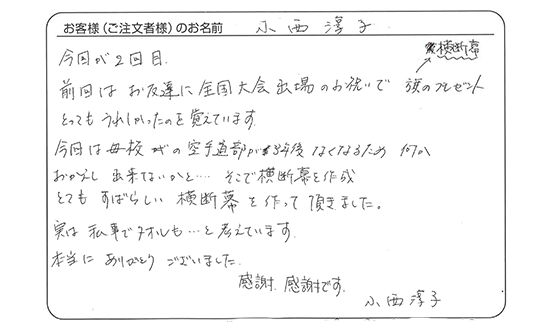 お客様（ご注文者様）のお名前 小西淳子
今回が2回目.
横断幕
前回は お友達に全国大会出場のお祝いで 旗のプレゼント
とっても うれしかったのを覚えています.
今回は母校の空手道部が3年後 なくなるため 何か
おかえし 出来ないかと…. そこで横断幕を作成
とても すばらしい 横断幕を作って頂きました。
実は 私事でタオルも…と考えています.
本当に ありがとう ございました.
感謝. 感謝です.
小西淳子